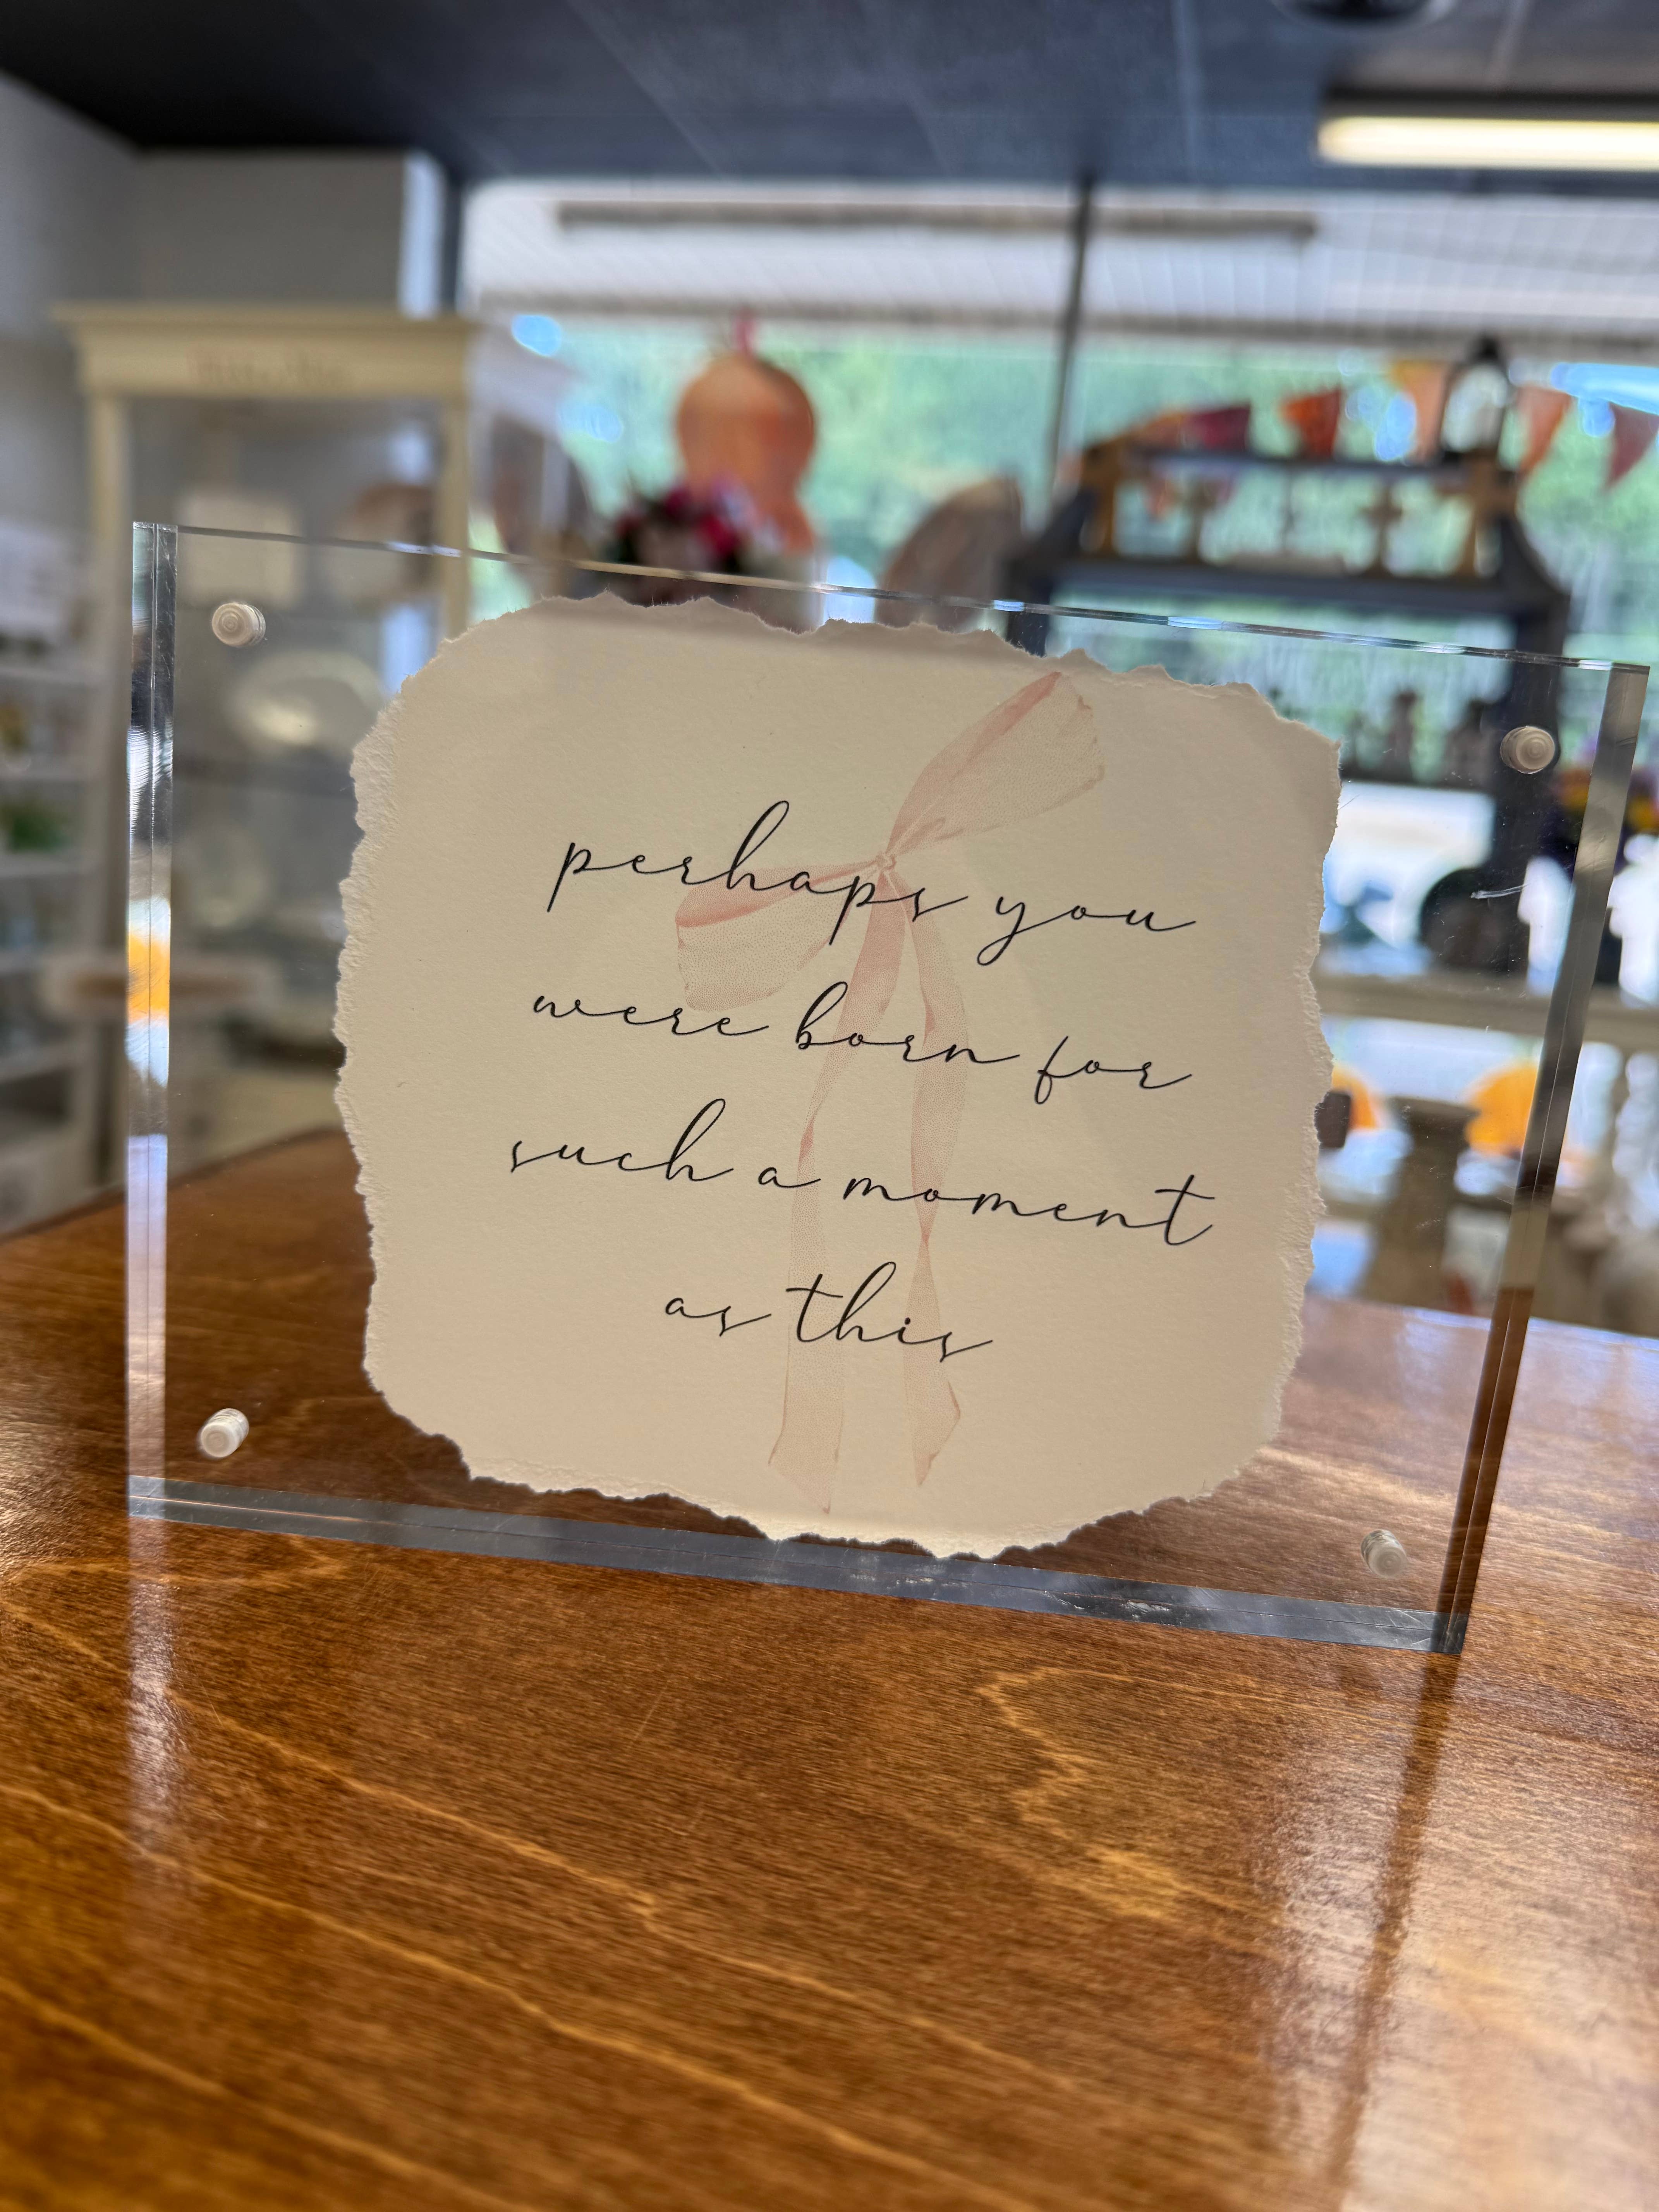 perhaps you
were born for
such a moment
as this